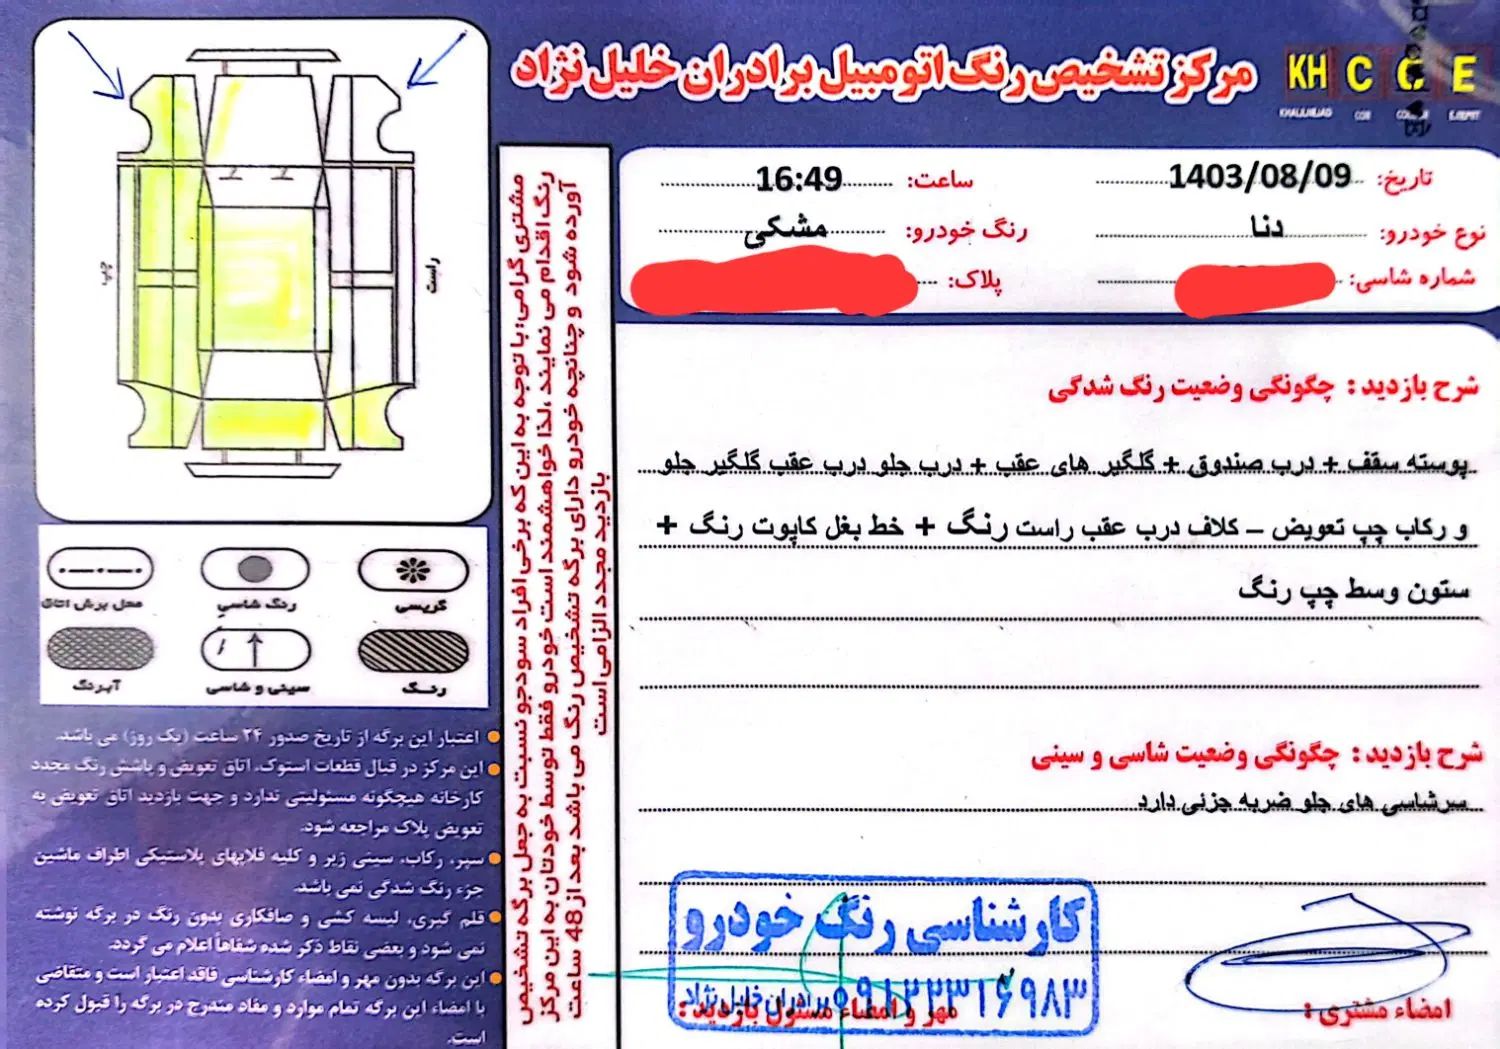 مرکز تشخیص رنگ اتومبیل برادران خلیل نژاد
KH C C E
KHALILNEJAD
CAR
EXPERT
تاریخ: 1403/08/09
ساعت: 16:49
نوع خودرو: دنا
رنگ خودرو: مشکی
شماره شاسی:
پلاک:
شرح بازدید : چگونگی وضعیت رنگ شدگی
پوسته سقف + درب صندوق + گلگیر های عقب + درب جلو درب عقب گلگیر جلو
و رکاب چپ تعویض – کلاف درب عقب راست رنگ + خط بغل کاپوت رنگ +
ستون وسط چپ رنگ
شرح بازدید : چگونگی وضعیت شاسی و سینی
سرشاسی های جلو ضربه جزئی دارد
کارشناسی رنگ خودرو
۰۹۱۲۲۳۱۶۹۸۳
برادران خلیل نژاد
امضاء مشتری :
مهر و امضاء مسئول بازدید :
مشتری گرامی: با توجه به این که برخی افراد سودجو نسبت به جعل برگه تشخیص
رنگ اقدام می نمایند ،لذا خواهشمند است خودرو فقط توسط خودتان به این مرکز
آورده شود و چنانچه خودرو دارای برگه تشخیص رنگ می باشد بعد از 48 ساعت
بازدید مجدد الزامی است
چپ
راست
گریسی
رنگ شاسی
محل برش اتاق
رنگ
سینی و شاسی
آبرنگ
اعتبار این برگه از تاریخ صدور ۲۴ ساعت (یک روز) می باشد.
این مرکز در قبال قطعات استوک، اتاق تعویض و پاشش رنگ مجدد
کارخانه هیچگونه مسئولیتی ندارد و جهت بازدید اتاق تعویض به
تعویض پلاک مراجعه شود.
سپر، رکاب، سینی زیر و کلیه فلاپهای پلاستیکی اطراف ماشین
جزء رنگ شدگی نمی باشد.
قلم گیری، لیسه کشی و صافکاری بدون رنگ در برگه نوشته
نمی شود و بعضی نقاط ذکر شده شفاهاً اعلام می گردد.
این برگه بدون مهر و امضاء کارشناسی فاقد اعتبار است و متقاضی
با امضاء این برگه تمام موارد و مفاد مندرج در برگه را قبول کرده
است.